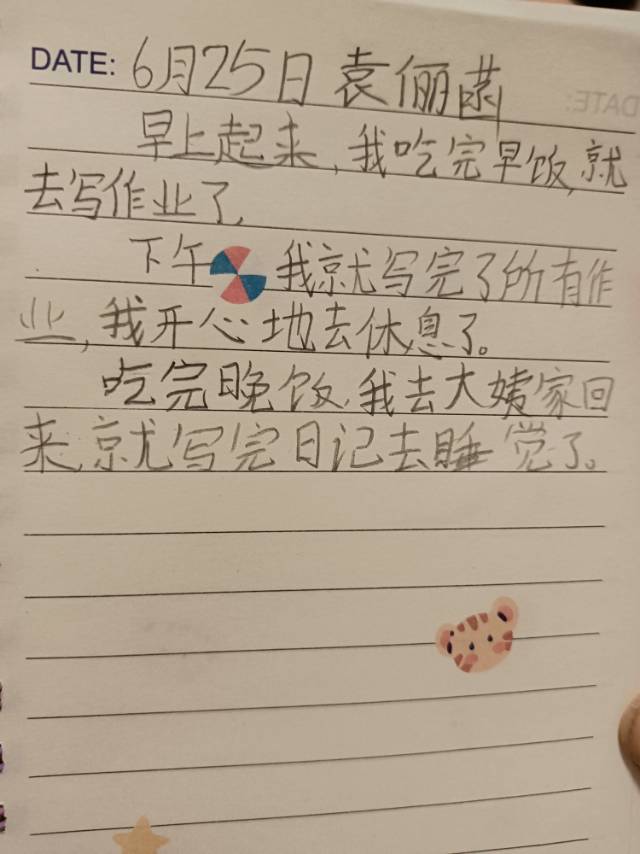 DATE: 6月25日 袁俪菡
早上起来,我吃完早饭,就
去写作业了,
下午 我就写完了所有作
业,我开心地去休息了。
吃完晚饭,我去大姨家回
来,就写完日记去睡觉了。